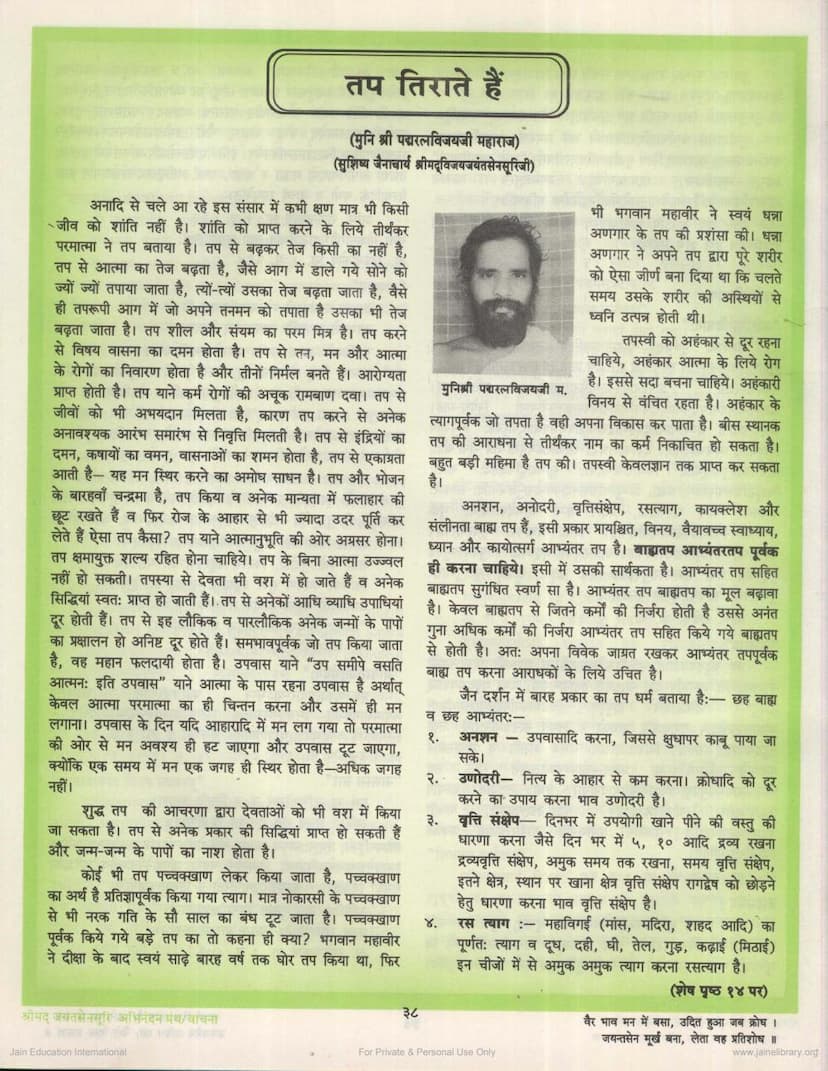 तप तिराते हैं
(मुनि श्री पद्मरत्नविजयजी महाराज)
(सुशिष्य जैनाचार्य श्रीमद्विजयजयंतसेनसूरिजी)
अनादि से चले आ रहे इस संसार में कभी क्षण मात्र भी किसी
जीव को शांति नहीं है। शांति को प्राप्त करने के लिये तीर्थंकर
परमात्मा ने तप बताया है। तप से बढ़कर तेज किसी का नहीं है,
तप से आत्मा का तेज बढ़ता है, जैसे आग में डाले गये सोने को
ज्यों ज्यों तपाया जाता है, त्यों-त्यों उसका तेज बढ़ता जाता है, वैसे
ही तपरूपी आग में जो अपने तनमन को तपाता है उसका भी तेज
बढ़ता जाता है। तप शील और संयम का परम मित्र है। तप करने
से विषय वासना का दमन होता है। तप से तन, मन और आत्मा
के रोगों का निवारण होता है और तीनों निर्मल बनते हैं। आरोग्यता
प्राप्त होती है। तप याने कर्म रोगों की अचूक रामबाण दवा। तप से
जीवों को भी अभयदान मिलता है, कारण तप करने से अनेक
अनावश्यक आरंभ समारंभ से निवृत्ति मिलती है। तप से इंद्रियों का
दमन, कषायों का वमन, वासनाओं का शमन होता है, तप से एकाग्रता
आती है— यह मन स्थिर करने का अमोघ साधन है। तप और भोजन
के बारहवाँ चन्द्रमा है, तप किया व अनेक मान्यता में फलाहार की
छूट रखते हैं व फिर रोज के आहार से भी ज्यादा उदर पूर्ति कर
लेते हैं ऐसा तप कैसा? तप याने आत्मानुभूति की ओर अग्रसर होना।
तप क्षमायुक्त शल्य रहित होना चाहिये। तप के बिना आत्मा उज्ज्वल
नहीं हो सकती। तपस्या से देवता भी वश में हो जाते हैं व अनेक
सिद्धियां स्वतः प्राप्त हो जाती हैं। तप से अनेकों आधि व्याधि उपाधियां
दूर होती हैं। तप से इह लौकिक व पारलौकिक अनेक जन्मों के पापों
का प्रक्षालन हो अनिष्ट दूर होते हैं। समभावपूर्वक जो तप किया जाता
है, वह महान फलदायी होता है। उपवास याने “उप समीपे वसति
आत्मनः इति उपवास” याने आत्मा के पास रहना उपवास है अर्थात्
केवल आत्मा परमात्मा का ही चिन्तन करना और उसमें ही मन
लगाना। उपवास के दिन यदि आहारादि में मन लग गया तो परमात्मा
की ओर से मन अवश्य ही हट जाएगा और उपवास टूट जाएगा,
क्योंकि एक समय में मन एक जगह ही स्थिर होता है—अधिक जगह
नहीं।
शुद्ध तप की आचरणा द्वारा देवताओं को भी वश में किया
जा सकता है। तप से अनेक प्रकार की सिद्धियां प्राप्त हो सकती हैं
और जन्म-जन्म के पापों का नाश होता है।
कोई भी तप पच्चक्खाण लेकर किया जाता है, पच्चक्खाण
का अर्थ है प्रतिज्ञापूर्वक किया गया त्याग। मात्र नोकारसी के पच्चक्खाण
से भी नरक गति के सौ साल का बंध टूट जाता है। पच्चक्खाण
पूर्वक किये गये बड़े तप का तो कहना ही क्या? भगवान महावीर
ने दीक्षा के बाद स्वयं साढ़े बारह वर्ष तक घोर तप किया था, फिर
मुनिश्री पद्मरत्नविजयजी म.
भी भगवान महावीर ने स्वयं धन्ना
अणगार के तप की प्रशंसा की। धन्ना
अणगार ने अपने तप द्वारा पूरे शरीर
को ऐसा जीर्ण बना दिया था कि चलते
समय उसके शरीर की अस्थियों से
ध्वनि उत्पन्न होती थी।
तपस्वी को अहंकार से दूर रहना
चाहिये, अहंकार आत्मा के लिये रोग
है। इससे सदा बचना चाहिये। अहंकारी
विनय से वंचित रहता है। अहंकार के
त्यागपूर्वक जो तपता है वही अपना विकास कर पाता है। बीस स्थानक
तप की आराधना से तीर्थंकर नाम का कर्म निकाचित हो सकता है।
बहुत बड़ी महिमा है तप की। तपस्वी केवलज्ञान तक प्राप्त कर सकता
है।
अनशन, अनोदरी, वृत्तिसंक्षेप, रसत्याग, कायक्लेश और
संलीनता बाह्य तप हैं, इसी प्रकार प्रायश्चित, विनय, वैयावच्च स्वाध्याय,
ध्यान और कायोत्सर्ग आभ्यंतर तप है। बाह्यतप आभ्यंतरतप पूर्वक
ही करना चाहिये। इसी में उसकी सार्थकता है। आभ्यंतर तप सहित
बाह्यतप सुगंधित स्वर्ण सा है। आभ्यंतर तप बाह्यतप का मूल बढ़ावा
है। केवल बाह्यतप से जितने कर्मों की निर्जरा होती है उससे अनंत
गुना अधिक कर्मों की निर्जरा आभ्यंतर तप सहित किये गये बाह्यतप
से होती है। अतः अपना विवेक जाग्रत रखकर आभ्यंतर तपपूर्वक
बाह्य तप करना आराधकों के लिये उचित है।
जैन दर्शन में बारह प्रकार का तप धर्म बताया है:— छह बाह्य
व छह आभ्यंतर:—
१. अनशन — उपवासादि करना, जिससे क्षुधापर काबू पाया जा
सके।
२. उणोदरी— नित्य के आहार से कम करना। क्रोधादि को दूर
करने का उपाय करना भाव उणोदरी है।
३. वृत्ति संक्षेप— दिनभर में उपयोगी खाने पीने की वस्तु की
धारणा करना जैसे दिन भर में ५, १० आदि द्रव्य रखना
द्रव्यवृत्ति संक्षेप, अमुक समय तक रखना, समय वृत्ति संक्षेप,
इतने क्षेत्र, स्थान पर खाना क्षेत्र वृत्ति संक्षेप रागद्वेष को छोड़ने
हेतु धारणा करना भाव वृत्ति संक्षेप है।
४. रस त्याग :— महाविगई (मांस, मदिरा, शहद आदि) का
पूर्णतः त्याग व दूध, दही, घी, तेल, गुड़, कढ़ाई (मिठाई)
इन चीजों में से अमुक अमुक त्याग करना रसत्याग है।
(शेष पृष्ठ १४ पर)
श्रीमद् जयंतसेनसूरि अभिनंदन ग्रंथ/वाचना
३८
वैर भाव मन में बसा, उदित हुआ जब क्रोध ।
जयन्तसेन मूर्ख बना, लेता वह प्रतिशोध ॥
Jain Education International
For Private & Personal Use Only
www.jainelibrary.org